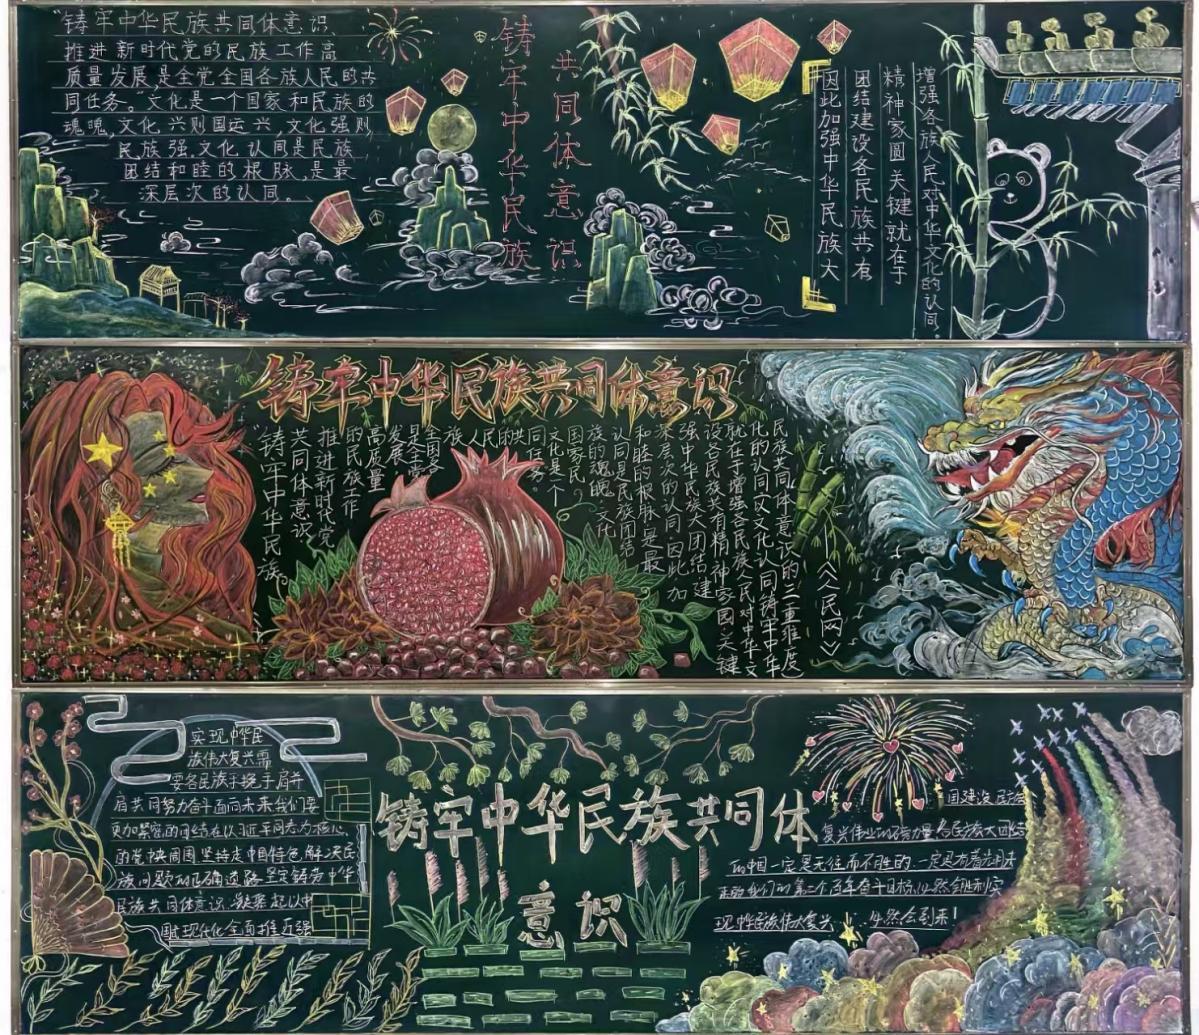 "铸牢中华民族共同体意识、
推进新时代党的民族工作高
质量发展是全党全国各族人民的共
同任务。"文化是一个国家和民族的
魂魄,文化兴则国运兴,文化强则
民族强。文化认同是民族
团结和睦的根脉,是最
深层次的认同。
铸牢中华民族
共同体意识
因此加强中华民族大
团结建设各民族共有
精神家圆关键就在于
增强各族人民对中华文化的认同。
铸牢中华民族共同体意识
"铸牢中华民族
共同体意识
推进新时代党
的民族工作
高质量
发展
是全党
全国各
族
人
民
的
共
同任务。
文化是一个
国家民
族的魂魄。文化
认同是民族团结
和睦的根脉,是最
深层次的认同因此加
强中华民族大团结建
设各民族共有精神家园关键
就在于增强各民族人民对中华文
化的认同文文化认同铸牢中华
民族共同体意识的三重维度
《人民网》
实现中华民
族伟大复兴需
要各民族手挽手肩并
肩共同努力奋斗面向未来我们要
更加紧密的团结在以习近平同志为核心
的党中央周围坚持走中国特色解决民
族问题的正确道路坚定铸劳中华
民族共同体意识 起以中
国式现代化全面推近强
铸牢中华民族共同体
意识
国建设民
复兴伟业的磅力量各民族大团结
的中国一定是无往而不胜的,一定是有着光明未
来的我们的第二个百年奋斗目标,必然会胜利实
现中华民族伟大复兴 必然会到来!